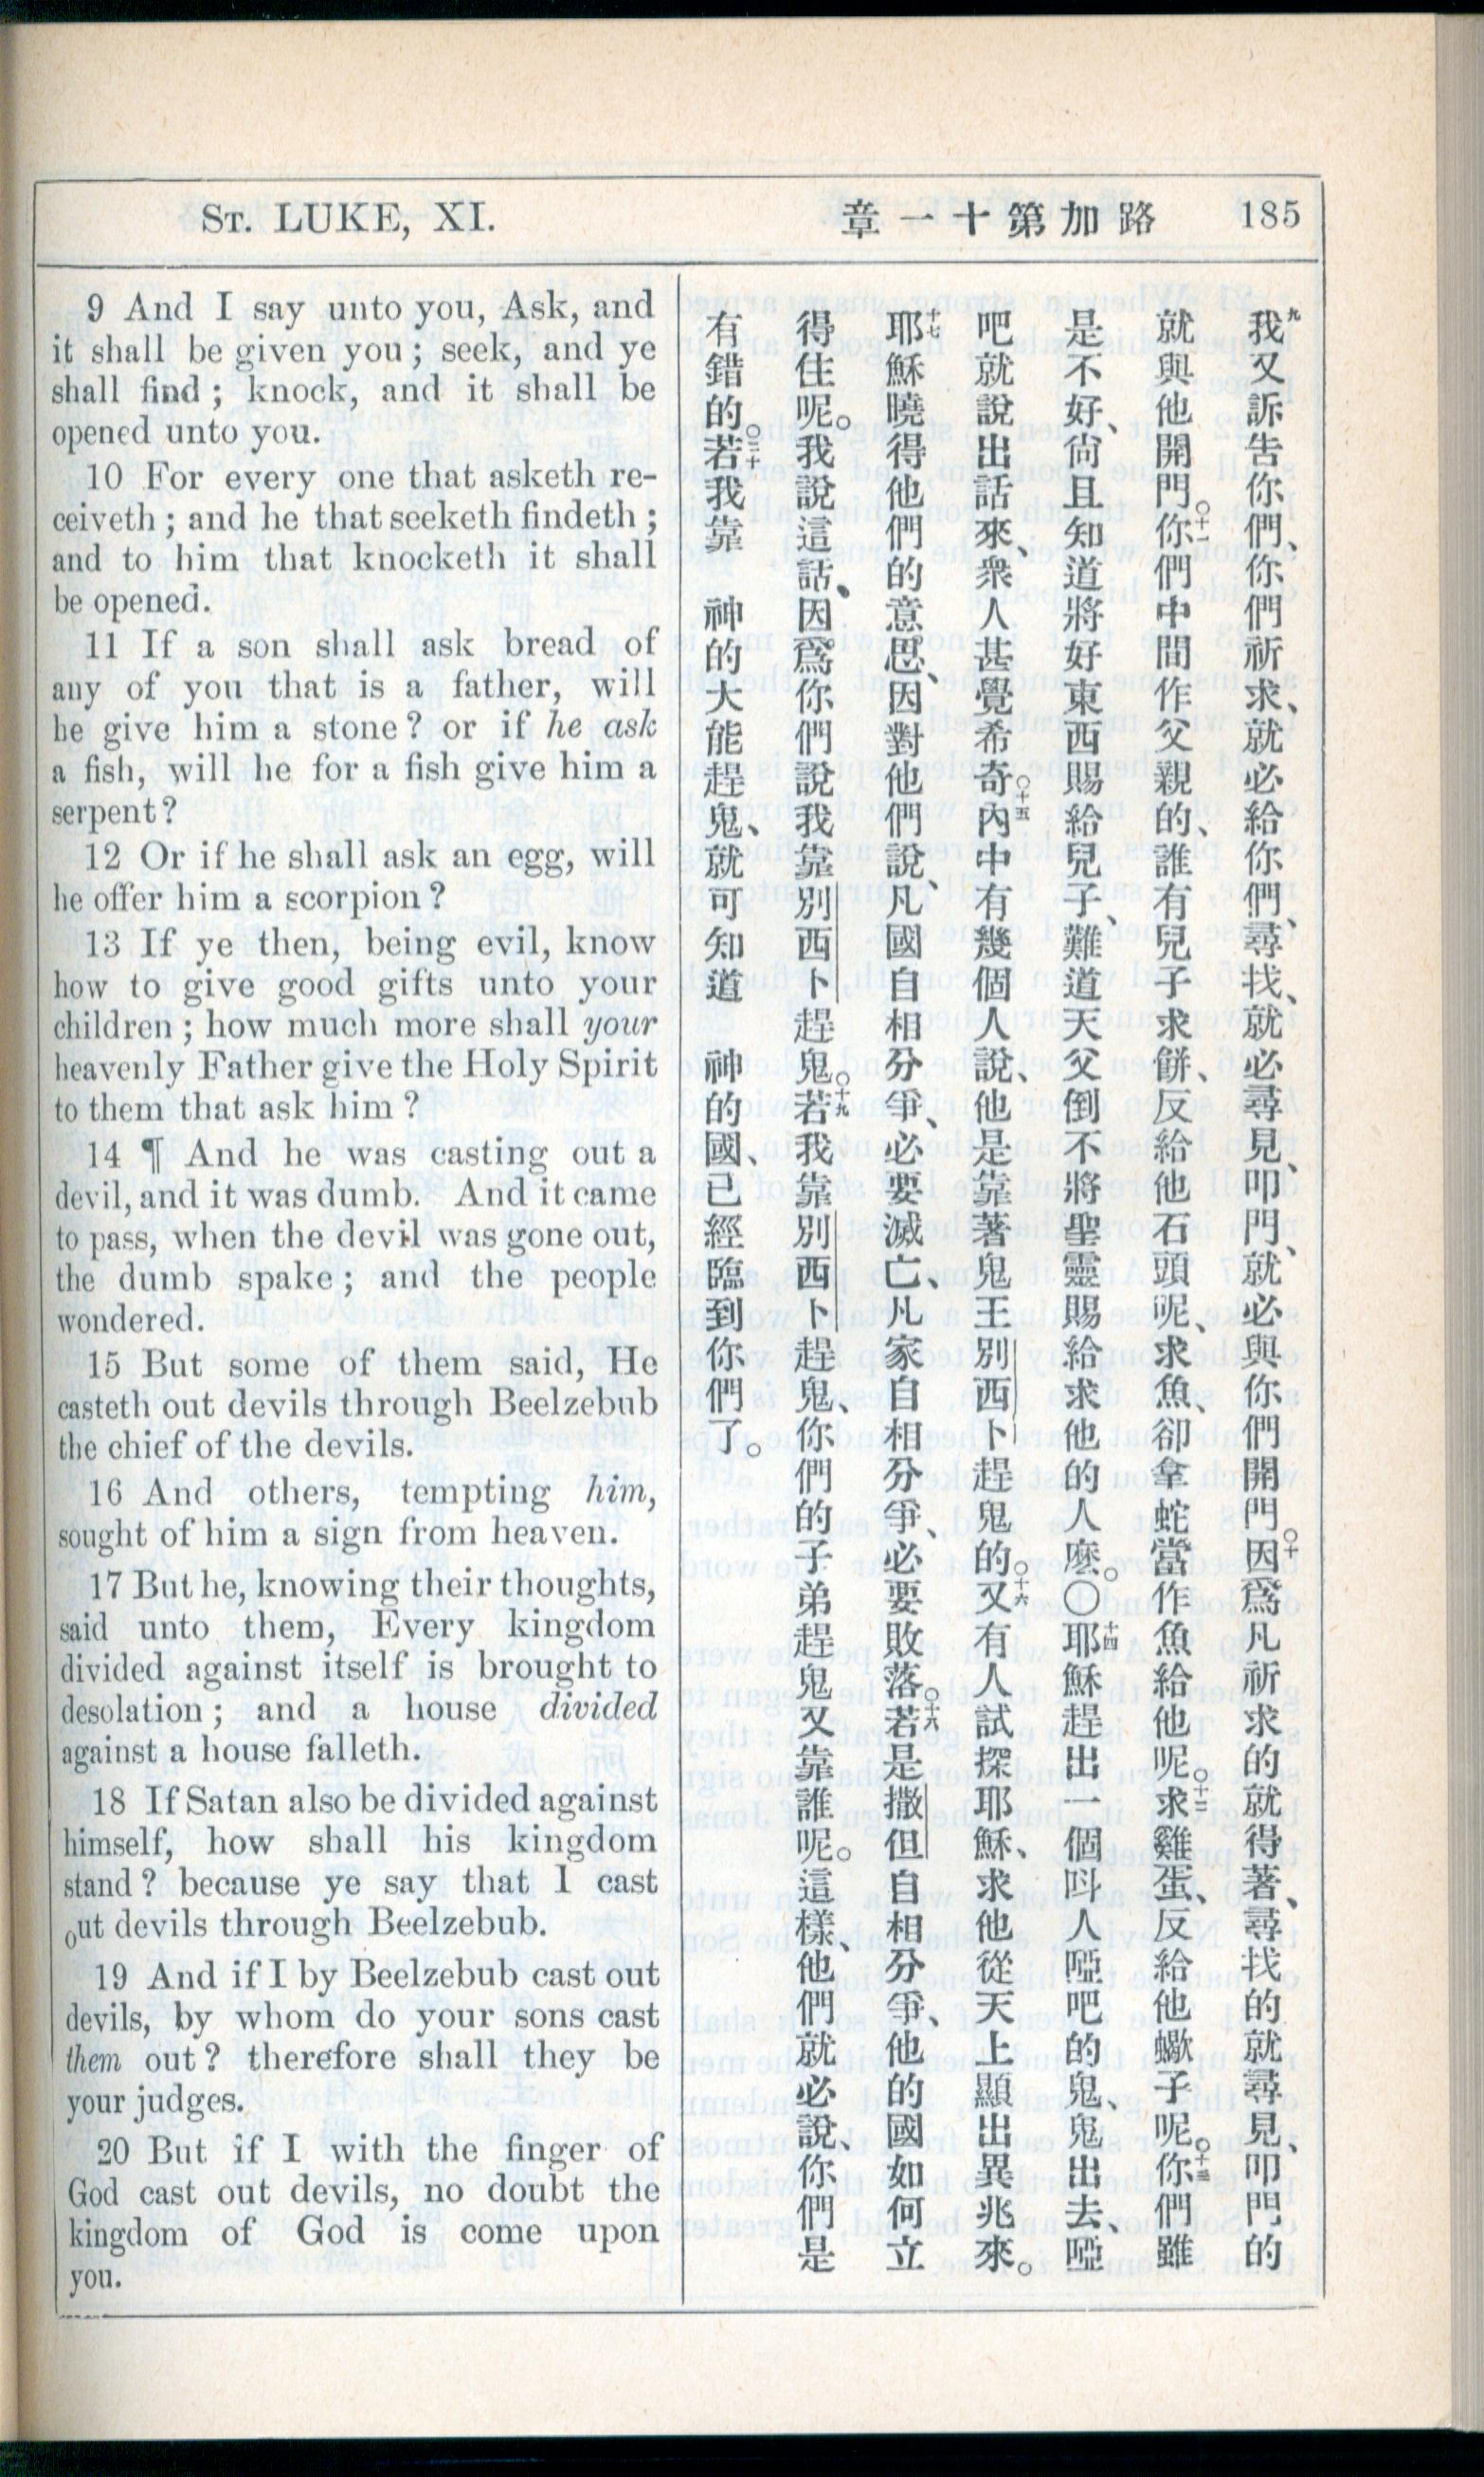 ST. LUKE, XI.
章一十第加路
185
9 And I say unto you, Ask, and
it shall be given you; seek, and ye
shall find; knock, and it shall be
opened unto you.
10 For every one that asketh re-
ceiveth; and he that seeketh findeth;
and to him that knocketh it shall
be opened.
11 If a son shall ask bread of
any of you that is a father, will
he give him a stone? or if he ask
a fish, will he for a fish give him a
serpent?
12 Or if he shall ask an egg, will
he offer him a scorpion?
13 If ye then, being evil, know
how to give good gifts unto your
children; how much more shall your
heavenly Father give the Holy Spirit
to them that ask him?
14 ¶ And he was casting out a
devil, and it was dumb. And it came
to pass, when the devil was gone out,
the dumb spake; and the people
wondered.
15 But some of them said, He
casteth out devils through Beelzebub
the chief of the devils.
16 And others, tempting him,
sought of him a sign from heaven.
17 But he, knowing their thoughts,
said unto them, Every kingdom
divided against itself is brought to
desolation; and a house divided
against a house falleth.
18 If Satan also be divided against
himself, how shall his kingdom
stand? because ye say that I cast
out devils through Beelzebub.
19 And if I by Beelzebub cast out
devils, by whom do your sons cast
them out? therefore shall they be
your judges.
20 But if I with the finger of
God cast out devils, no doubt the
kingdom of God is come upon
you.
九我又訴告你們、你們祈求、就必給你們、尋找、就必尋見、叩門、就必與你們開門。十因爲凡祈求的就得著、尋找的就尋見、叩門的
就與他開門。十一你們中間作父親的、誰有兒子求餅、反給他石頭呢、求魚、卻拿蛇當作魚給他呢。十二求雞蛋、反給他蠍子呢。十三你們雖
是不好、尙且知道將好東西賜給兒子、難道天父倒不將聖靈賜給求他的人麽。〇十四耶穌趕出一個呌人啞吧的鬼、鬼出去、啞
吧就說出話來、衆人甚覺希奇。十五內中有幾個人說、他是靠著鬼王別西卜趕鬼的。十六又有人試探耶穌、求他從天上顯出異兆來。
十七耶穌曉得他們的意思、因對他們說、凡國自相分爭、必要滅亡、凡家自相分爭、必要敗落。十八若是撒但自相分爭、他的國如何立
得住呢。我說這話、因爲你們說我靠別西卜趕鬼。十九若我靠別西卜趕鬼、你們的子弟趕鬼又靠誰呢。這樣、他們就必說、你們是
有錯的。二十若我靠　神的大能趕鬼、就可知道　神的國、已經臨到你們了。